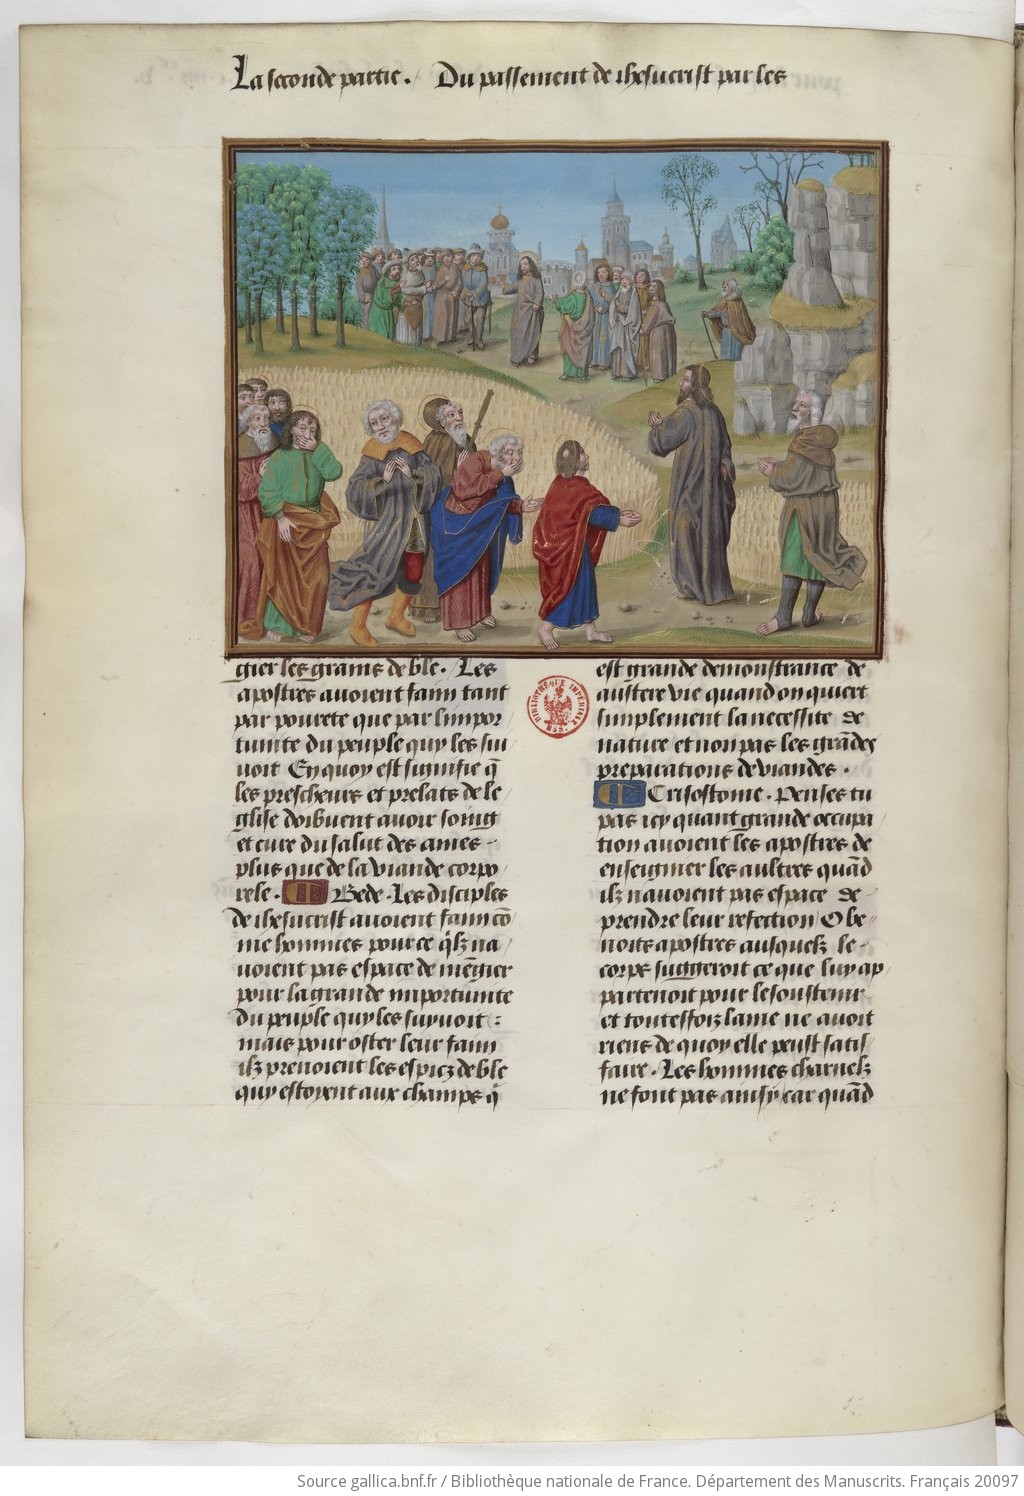 La seconde partie. Du passement de ihesucrist par les
gier les grains de ble. Les
apostres auoient faim tant
par pourete que par limpor
tunite du peuple quy les sui
uoit En quoy est signifie q̄
les prescheurs et prelats de le
glise doibuent auoir soing
et cure du salut des ames
plus que de la viande corpo
rele. Bede. Les disciples
de ihesucrist auoient faim cō
me hommes pour ce q̄lz na
uoient pas espace de mēgier
pour la grande importunite
du peuple quy les suyuoit:
mais pour oster leur faim
ilz prenoient les espicz de ble
quy estoyent aux champs q̄
est grande demonstrance de
austere vie quand on quiert
simplement la necessite de
nature et non pas les grādes
preparations de viandes.
Crisostome. Penses tu
pas icy quant grande occupa
tion auoient les apostres de
enseignier les aultres quād
ilz nauoient pas espace de
prendre leur refection O be
noits apostres ausquelz le
corps suggeroit ce que luy ap
partenoit pour le soustenir
et touteffoiz lame ne auoit
riens de quoy elle peust satis
faire. Les hommes charnelz
ne font pas ainsy car quād
BIBLIOTHÈQUE IMPÉRIALE MSS.
Source gallica.bnf.fr / Bibliothèque nationale de France. Département des Manuscrits. Français 20097